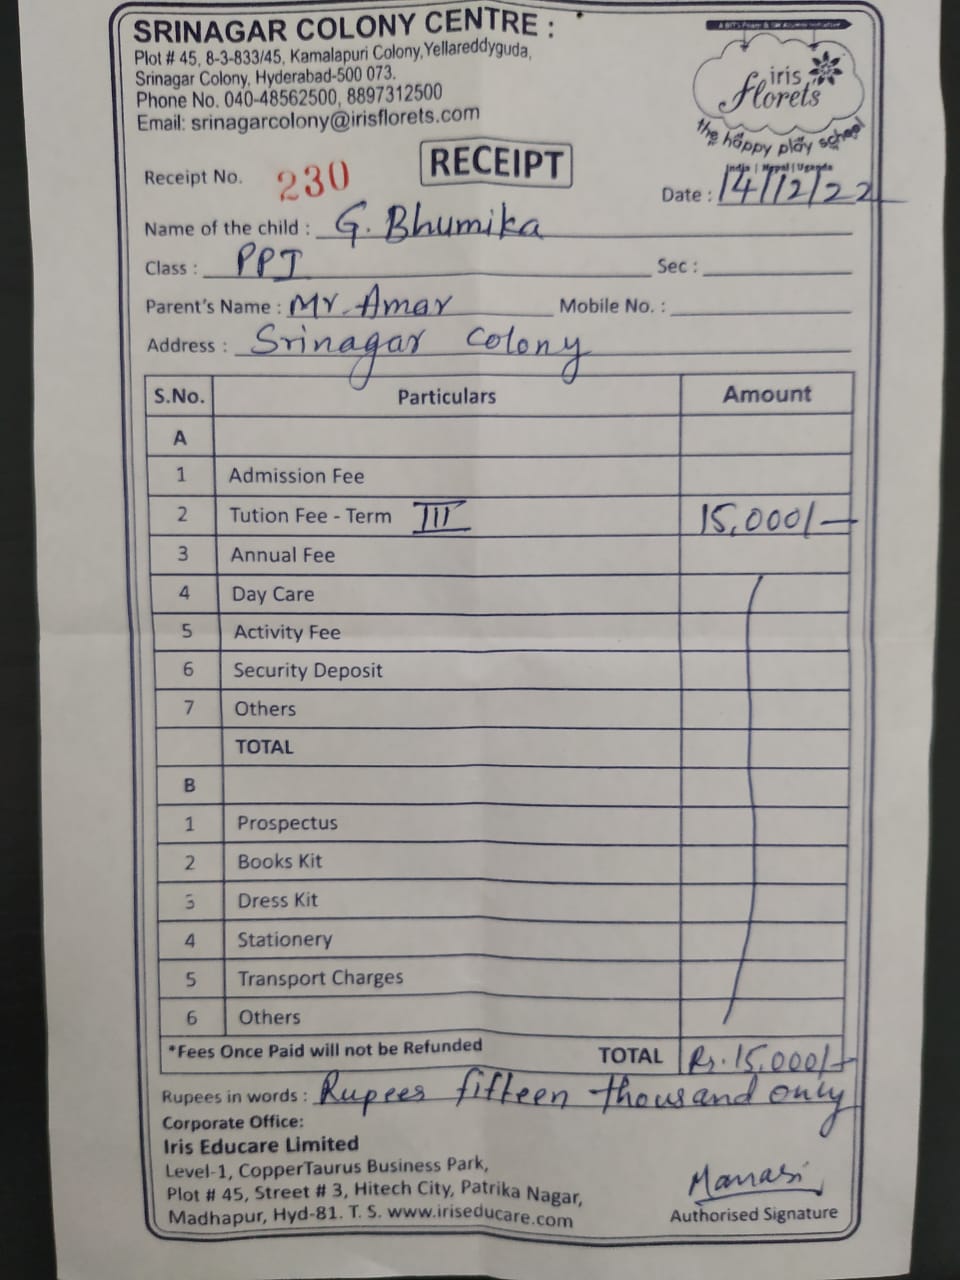 SRINAGAR COLONY CENTRE :
Plot # 45, 8-3-833/45, Kamalapuri Colony,Yellareddyguda,
Srinagar Colony, Hyderabad-500 073.
Phone No. 040-48562500, 8897312500
Email: srinagarcolony@irisflorets.com
iris
florets
the happy play school
India | Nepal | Uganda
RECEIPT
Receipt No. 230
Date : 14/12/22
Name of the child : G. Bhumika
Class : PPI Sec :
Parent's Name : Mr. Amar Mobile No. :
Address : Srinagar Colony
S.No. Particulars Amount
A
1 Admission Fee
2 Tution Fee - Term III 15,000/-
3 Annual Fee
4 Day Care
5 Activity Fee
6 Security Deposit
7 Others
TOTAL
B
1 Prospectus
2 Books Kit
3 Dress Kit
4 Stationery
5 Transport Charges
6 Others
*Fees Once Paid will not be Refunded TOTAL Rs. 15,000/-
Rupees in words : Rupees fifteen thousand only
Corporate Office:
Iris Educare Limited
Level-1, CopperTaurus Business Park,
Plot # 45, Street # 3, Hitech City, Patrika Nagar,
Madhapur, Hyd-81. T. S. www.iriseducare.com
Manasi
Authorised Signature